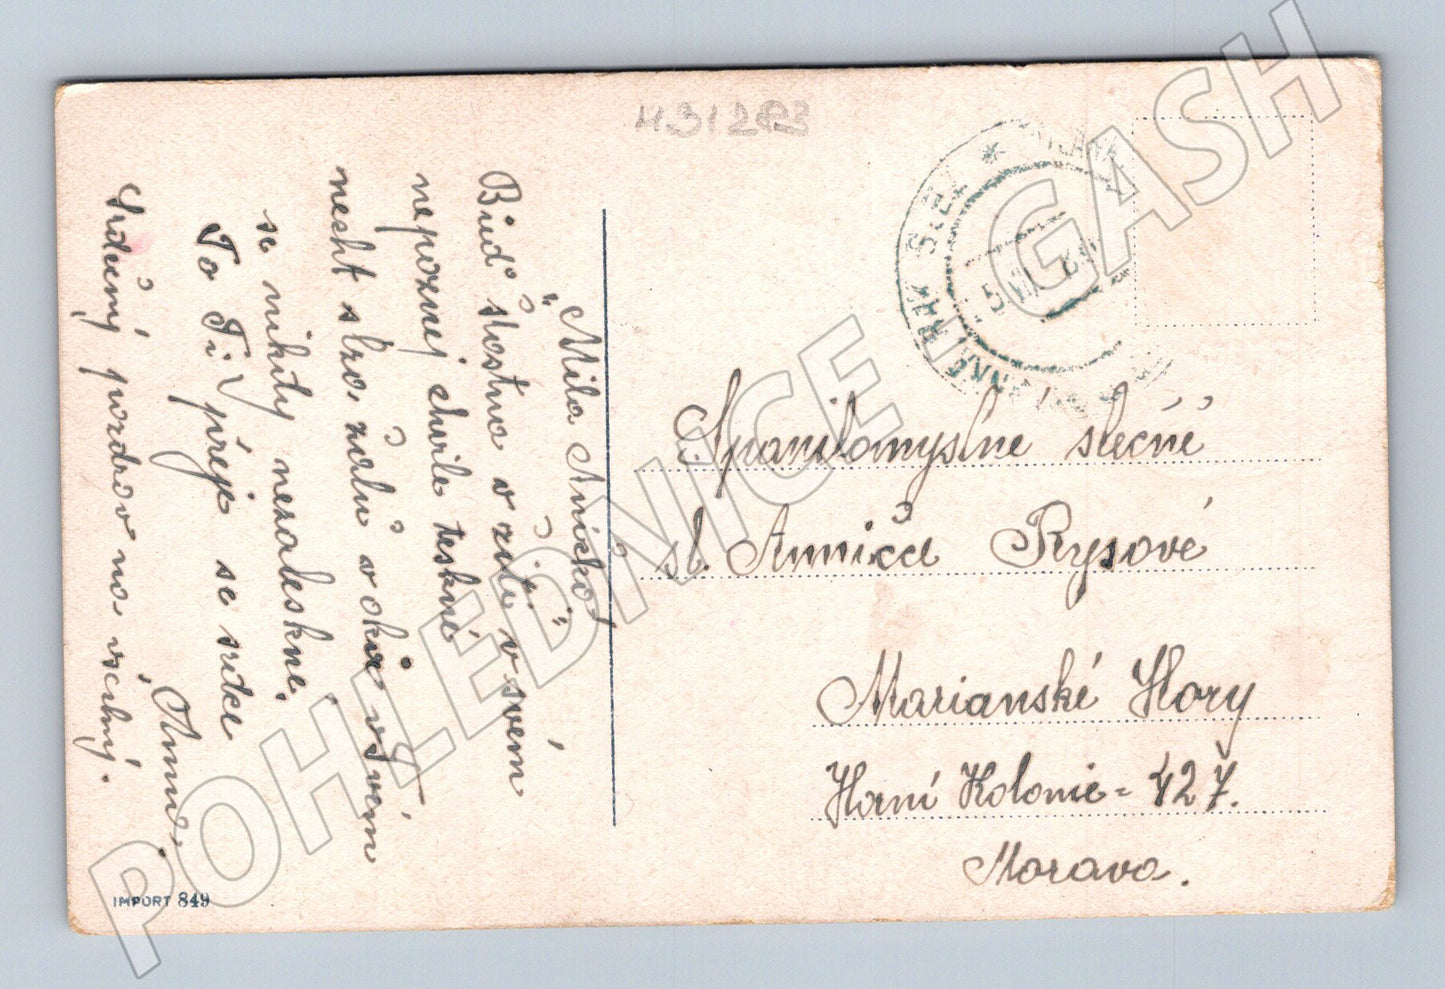 431283
"Milá Aničko!"
Buď šťastna a žij v svém
nepoznej chvíle teskné
nechť slza, žalu v oku Tvém
se nikdy nezaleskne.
To Ti přeje se srdce
Anna.
Srdečný pozdrav na všechny.
IMPORT 849
5 VII
Spanilomyslné slečně
sl. Anničce Rysové
Marianské Hory
Horní Kolonie = 427.
Morava.
POHLEDNICE GASH